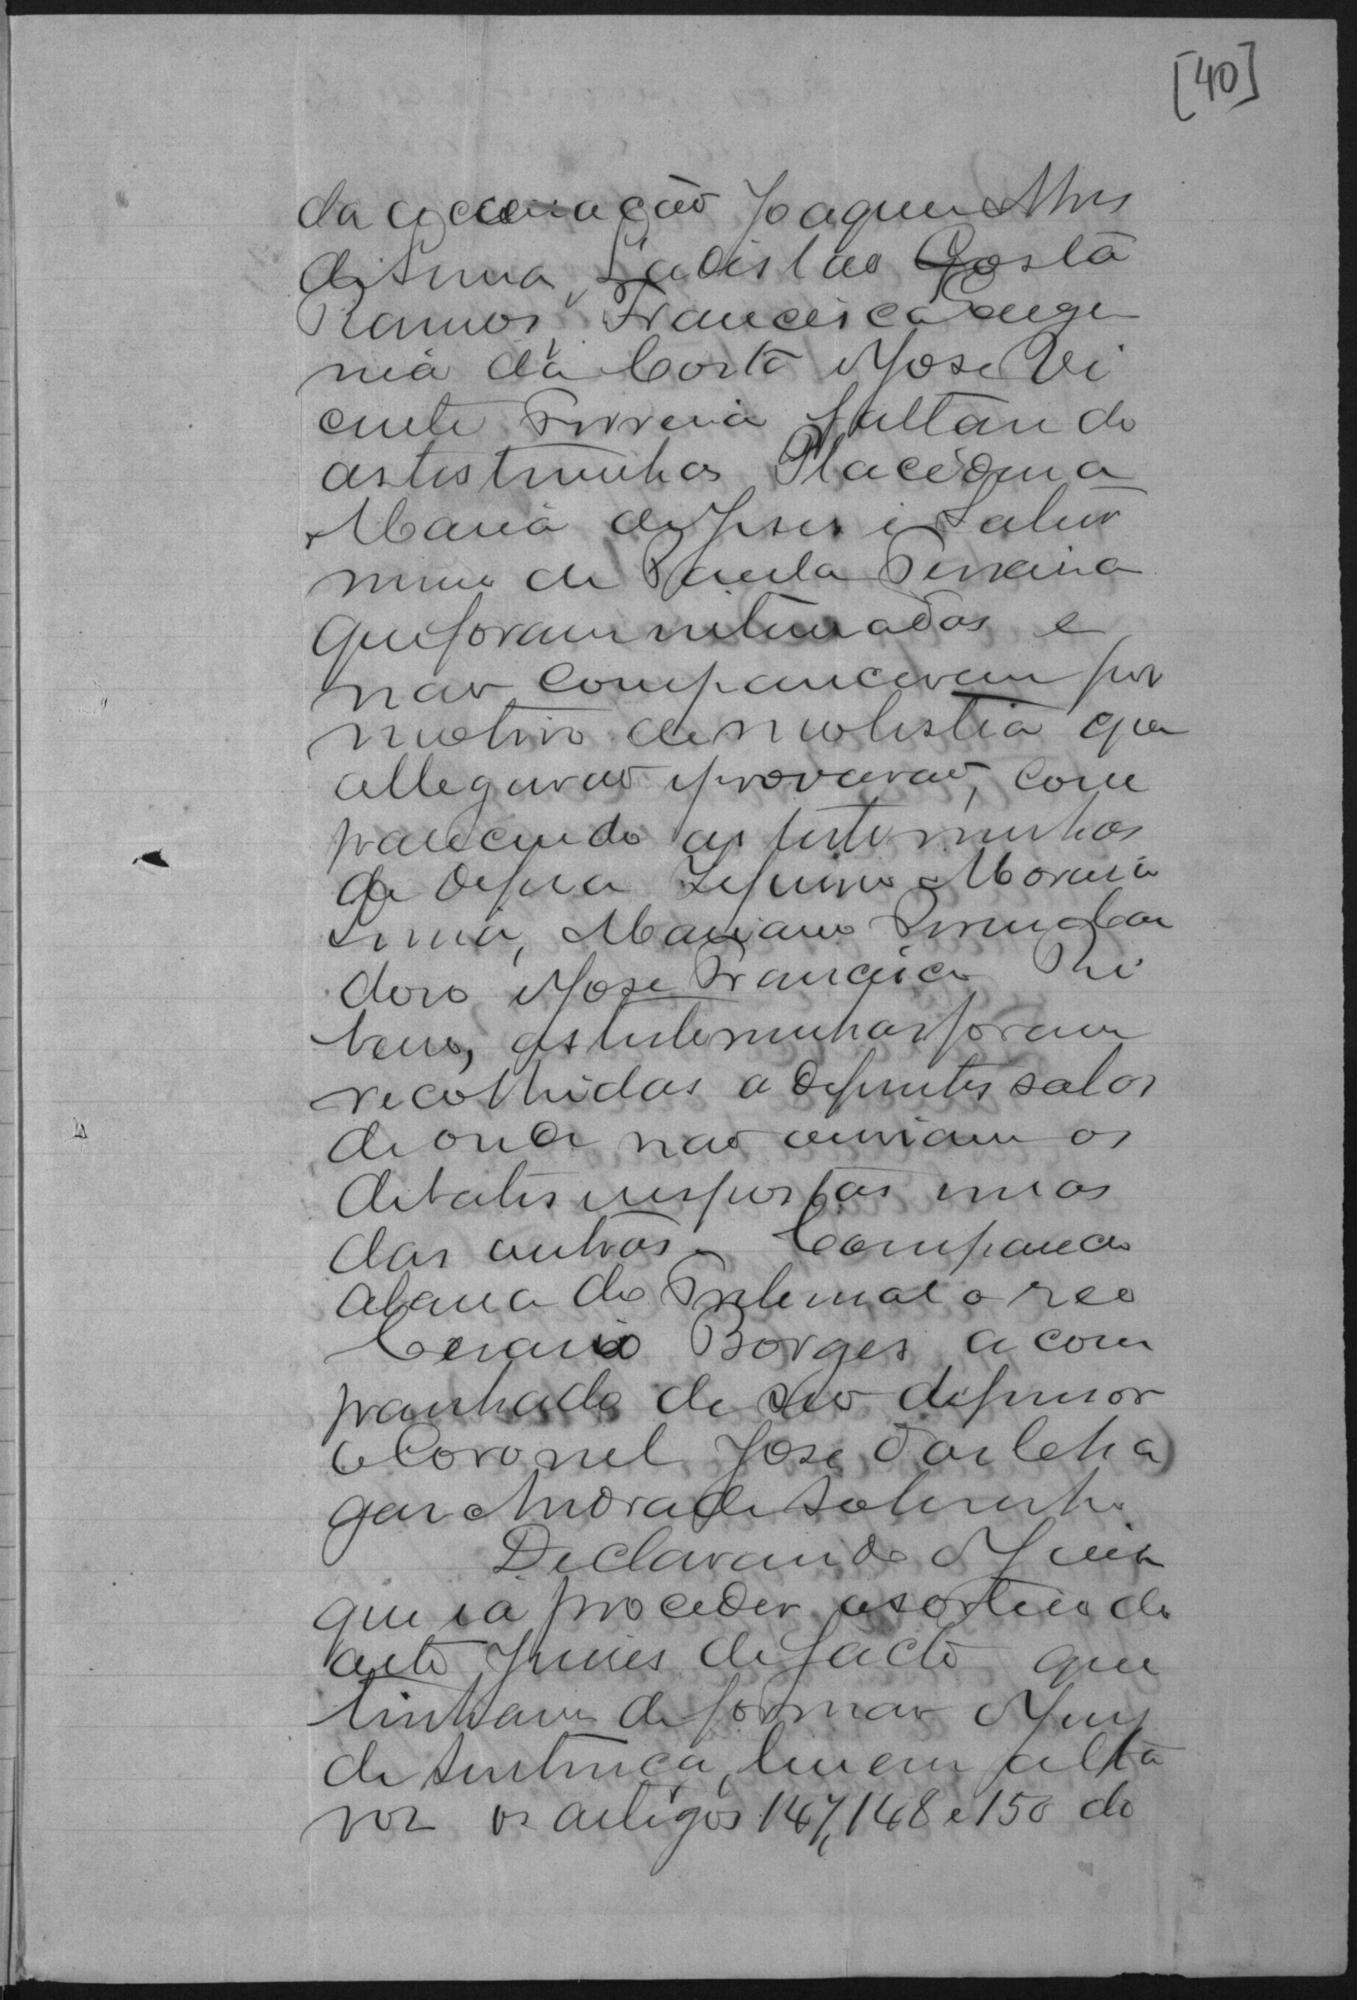 [40]
da accusação Joaquim Alves
de Lima, Ladislao Costa
Ramos, Francisca Euge
nia da Costa e Jose Vi
cente Ferreira faltando
as testemunhas Placedina
Maria de Jesus e Satur
nino de Paula Ferreira
que foram intimadas e
não compareceram por
motivo de molestia que
allegarão e provarão, com
parecendo as testemunhas
de defesa Zeferino Moreira
Lima, Mariano
doro e Jose Francisco Ri
beiro, as testemunhas foram
recolhidas a differentes salas
de onde não ouviam os
debates e respostas umas
das outras. Compareceo
abarra do Tribunal o reo
Cesario Borges acom
panhado de seo defensor
o Coronel Jose
gas Andrade Sobrinho.
Declarando o Juiz
que ia proceder o sorteio de
oito Juizes de facto que
tinham de formar o Jury
de sentença, leu em alta
voz os artigos 147, 148 e 150 do